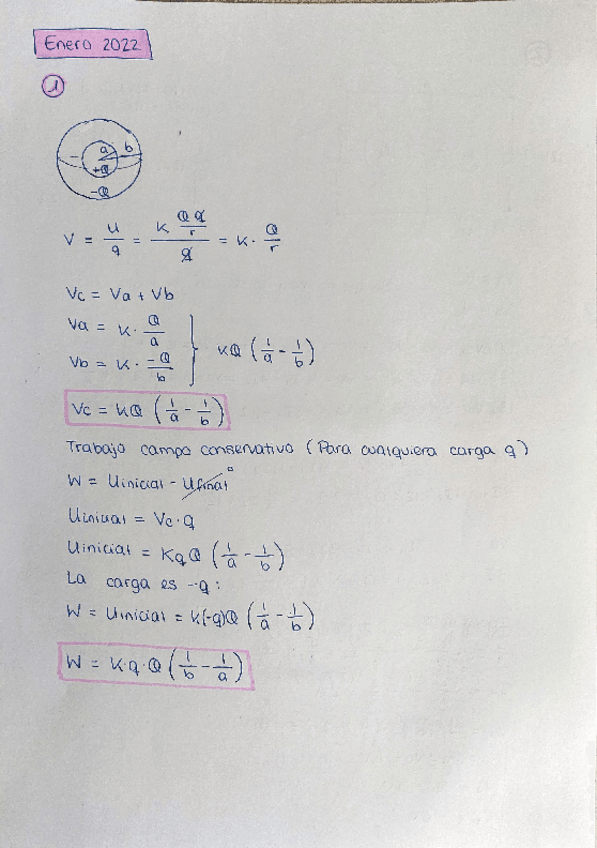 Enero 2022
1
a b
-
+Q
-Q
V = U/q = (K Qq/r)/q = K · Q/r
Vc = Va + Vb
Va = K · Q/a
Vb = K · -Q/b } KQ (1/a - 1/b)
Vc = KQ (1/a - 1/b)
Trabajo campo conservativo (Para cualquiera carga q)
W = Uinicial - Ufinal 0
Uinicial = Vc·q
Uinicial = KqQ (1/a - 1/b)
La carga es -q:
W = Uinicial = K(-q)Q (1/a - 1/b)
W = K·q·Q (1/b - 1/a)